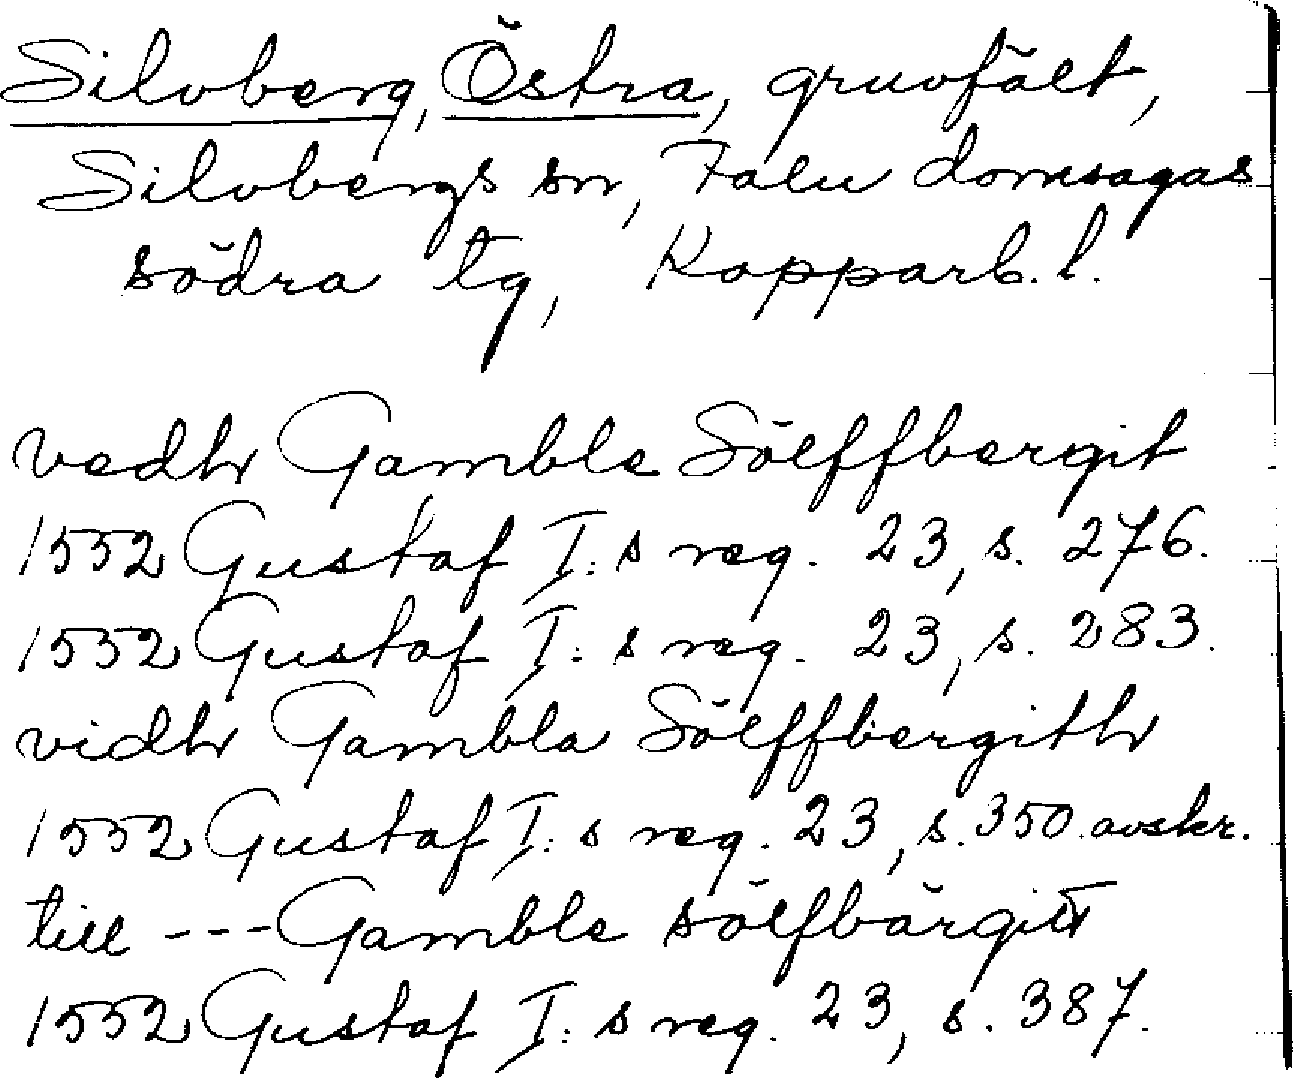 Silvberg, Östra, gruvfält,
Silvbergs sn, Falu domsagas
södra tg, Kopparb. l.
vedh Gamble Sölffbergit
1552 Gustaf I:s reg. 23, s. 276.
1552 Gustaf I:s reg. 23, s. 283.
vidh Gambla Sölffbergith
1552 Gustaf I:s reg. 23, s. 350. avskr.
till --- Gamble sölfbärgitt
1552 Gustaf I:s reg. 23, s. 387.